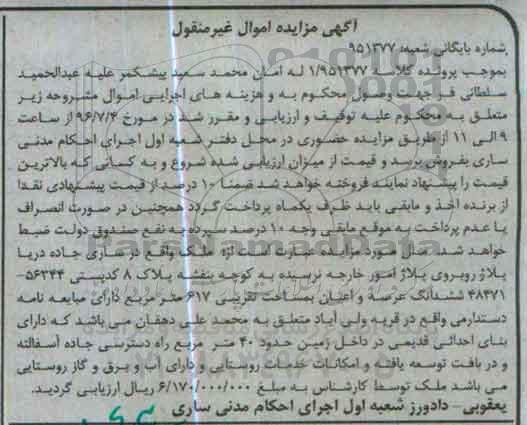 آگهی مزایده اموال غیرمنقول
شماره بایگانی شعبه: ۹۵۱۳۷۷
بموجب پرونده کلاسه ۱/۹۵۱۳۷۷ له امان محمد سعید پیشکمر علیه عبدالحمید
سلطانی فر جهت وصول محکوم به و هزینه های اجرایی اموال مشروحه زیر
متعلق به محکوم علیه توقیف و ارزیابی و مقرر شد در مورخ ۹۶/۷/۴ از ساعت
۹ الی ۱۱ از طریق مزایده حضوری در محل دفتر شعبه اول اجرای احکام مدنی
ساری بفروش برسد و قیمت از میزان ارزیابی شده شروع و به کسانی که بالاترین
قیمت را پیشنهاد نمایند فروخته خواهد شد ضمنا ۱۰ درصد از قیمت پیشنهادی نقدا
از برنده اخذ و مابقی باید ظرف یکماه پرداخت گردد همچنین در صورت انصراف
یا عدم پرداخت به موقع مابقی وجه ۱۰ درصد سپرده به نفع صندوق دولت ضبط
خواهد شد. محل مورد مزایده عبارت است از: ملک واقع در ساری جاده دریا
پلاژ روبروی پلاژ امور خارجه نرسیده به کوچه بنفشه پلاک ۸ کدپستی ۵۶۳۴۴-
۴۸۴۷۱ ششدانگ عرصه و اعیان بمساحت تقریبی ۶۱۷ متر مربع دارای مبایعه نامه
دستدارمی واقع در قریه ولی آباد متعلق به محمد علی دهقان می باشد که دارای
بنای احداثی قدیمی در داخل زمین حدود ۴۰ متر مربع راه دسترسی جاده آسفالته
و در بافت توسعه یافته و امکانات خدمات روستایی و دارای آب و برق و گاز روستایی
می باشد ملک توسط کارشناس به مبلغ ۶/۱۷۰/۰۰۰/۰۰۰ ریال ارزیابی گردید.
یعقوبی- دادورز شعبه اول اجرای احکام مدنی ساری